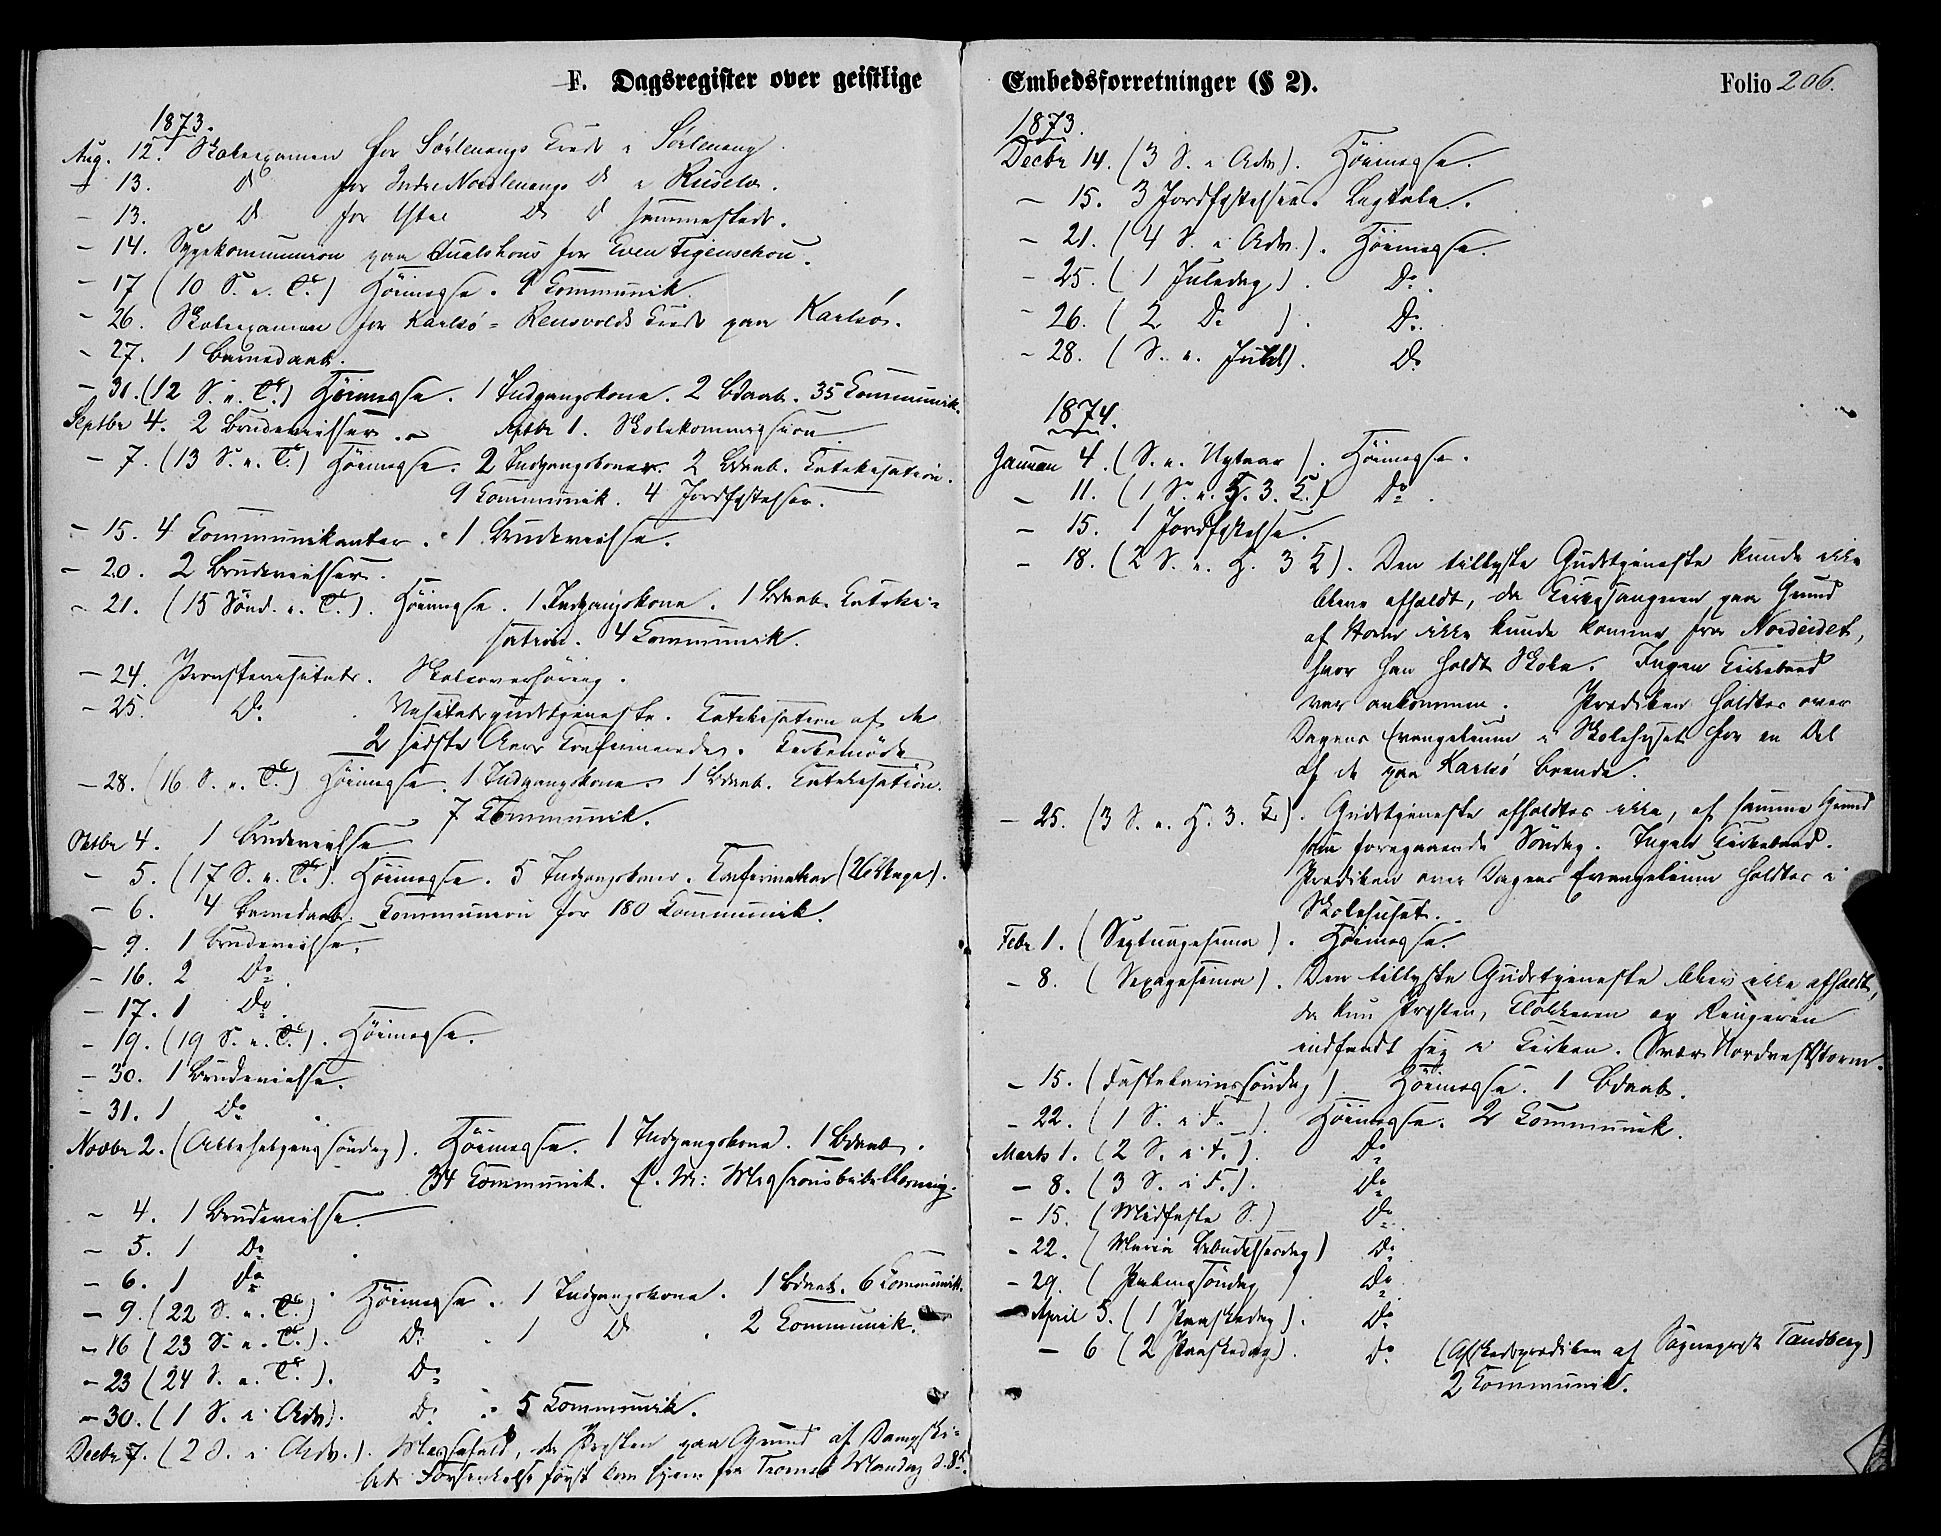 F. Dagsregister over geistlige
1873.
Aug. 12. Skoleexamen for Sörlenangs Kreds i Sörlenang.
- 13. Do for Indre Nordlenangs Do i Russelv.
- 13. Do for Ytre Do Do sammesteds.
- 14. Sygekommunion paa for Even Figenschou.
- 17 (10 S. e. Tr.) Høimesse. 9 Kommunik.
- 26. Skoleexamen for Karlsö-Rensvolds Kreds paa Karlsö.
- 27. 1 Barnedaab.
- 31. (12 S. e. Tr.) Høimesse. 1 Indgangskone. 2 Bdaab. 35 Kommunik.
Septbr 4. 2 Brudevielser. Septbr 1. Skolekommission
- 7. (13 S. e. Tr.) Høimesse. 2 Indgangskoner. 2 Bdaab. Katekisation.
9 Kommunik. 4 Jordfæstelser.
- 15. 4 Kommunikanter. 1 Brudevielse.
- 20. 2 Brudevielser.
- 21. (15 Sönd. e. Tr.). Høimesse. 1 Indgangskone. 1 Bdaab. Kateki-
sation. 4 Kommunik.
- 24. Provstevisitats. Skoleoverhøring.
- 25. Do. Visitatsgudstjeneste. Katekisation af de
2 sidste Aars Konfirmerede. Kirkemöde
- 28. (16 S. e. Tr.) Høimesse. 1 Indgangskone. 1 Bdaab. Katekisation.
7 Kommunik.
Oktbr 4. 1 Brudevielse
- 5. (17 S. e. Tr.). Høimesse. 5 Indgangskoner. Konfirmation
- 6. 4 Barnedaab. Kommunion for 180 Kommunik.
- 9. 1 Brudevielse.
- 16. 2 Do.
- 17. 1 Do.
- 19. (19 S. e. Tr.). Høimesse.
- 30. 1 Brudevielse.
- 31. 1 Do.
Novbr 2. (Allehelgenssöndag). Høimesse. 1 Indgangskone. 1 Bdaab.
34 Kommunik. E. M: Missionsbibellæsning.
- 4. 1 Brudevielse.
- 5. 1 Do.
- 6. 1 Do
- 9. (22 S. e. Tr.) Høimesse. 1 Indgangskone. 1 Bdaab. 6 Kommunik.
- 16 (23 S. e. Tr.). Do. 1 Do. 2 Kommunik.
- 23 (24 S. e. Tr.). Do
- 30. (1 S. i Adv). Do. 5 Kommunik.
Decbr 7. (2 S. i Adv.). Messefald, da Præsten paa Grund af Dampski-
bets Forsinkelse først kom hjem fra Tromsö Mandag d. 8de.
Embedsforretninger (§ 2). Folio 206.
1873.
Decbr 14. (3 S. i Adv). Høimesse.
- 15. 3 Jordfæstelser. Ligtale.
- 21. (4 S. i Adv.). Høimesse.
- 25. (1 Juledag). Do.
- 26. (2 Do ). Do.
- 28. (S. e. Juledag). Do
1874.
Januar 4. (S. e. Nytaar). Høimesse.
- 11. (1 S. e. H. 3. K.) Do.
- 15. 1 Jordfæstelse.
- 18. (2 S. e. H. 3 K). Den tillyste Gudstjeneste kunde ikke
blive afholdt, da Kirkesangeren paa Grund
af Storm ikke kunde komme fra Nordeidet,
hvor han holdt Skole. Ingen Kirkebaad
var ankommen. Prædiken holdtes over
Dagens Evangelium i Skolehuset for en Del
af de paa Karlsö Boende.
- 25. (3 S. e. H. 3. K). Gudstjeneste afholdtes ikke, af samme Grund
som foregaaende Söndag. Ingen Kirkebaad.
Prædiken over Dagens Evangelium holdtes i
Skolehuset.
Febr 1. (Septuagesima). Høimesse.
- 8. (Sexagesima). Den tillyste Gudstjeneste blev ikke afholdt,
da kun Præsten, Klokkeren og Ringeren
indfandt sig i Kirken. Svær Nordveststorm.
- 15. (Fastelavnssöndag). Høimesse. 1 Bdaab.
- 22. (1 S. i F.). Høimesse. 2 Kommunik.
Marts 1. (2 S. i F.). Do
- 8. (3 S. i F.). Do
- 15. (Midfaste S.) Do
- 22. (Mariæ Bebudelsesdag) Do
- 29. (Palmesöndag) Do
April 5. (1 Paaskedag). Do
- 6 (2 Paaskedag). Do (Afskedsprædiken af Sognepræst Tandberg)
2 Kommunik.